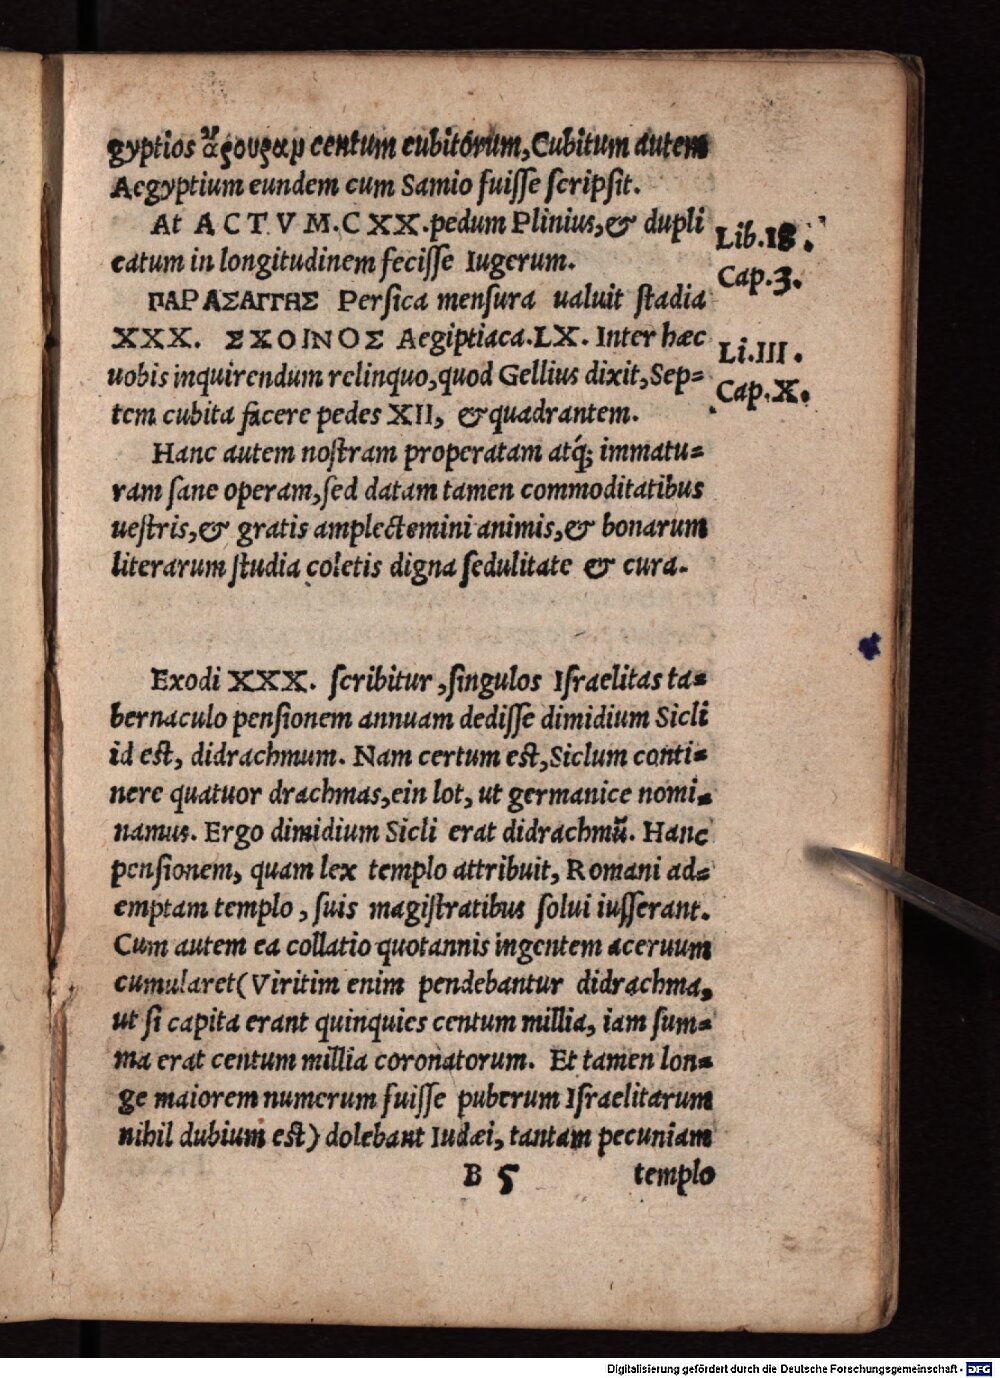 gyptios ἄρουραμ centum cubitórum, Cubitum autem
Aegyptium eundem cum Samio fuiſſe ſcripſit.
At ACTVM. CXX. pedum Plinius, & dupli
catum in longitudinem feciſſe Iugerum.
Lib. 18.
Cap. 3.
ΠΑΡΑΣΑΓΓΗΣ Perſica menſura ualuit ſtadia
XXX. ΣΧΟΙΝΟΣ Aegiptiaca. LX. Inter hæc
uobis inquirendum relinquo, quod Gellius dixit, Sep=
tem cubita facere pedes XII, & quadrantem.
Li. III.
Cap. X.
Hanc autem noſtram properatam atq́; immatu=
ram ſane operam, ſed datam tamen commoditatibus
ueſtris, & gratis amplectemini animis, & bonarum
literarum ſtudia coletis digna ſedulitate & cura.
Exodi XXX. ſcribitur, ſingulos Iſraelitas ta=
bernaculo penſionem annuam dediſſe dimidium Sicli
id eſt, didrachmum. Nam certum eſt, Siclum conti=
nere quatuor drachmas, ein lot, ut germanice nomi=
namus. Ergo dimidium Sicli erat didrachmū. Hanc
penſionem, quam lex templo attribuit, Romani ad=
emptam templo, ſuis magiſtratibus ſolui iuſſerant.
Cum autem ea collatio quotannis ingentem aceruum
cumularet (Viritim enim pendebantur didrachma,
ut ſi capita erant quinquies centum millia, iam ſum=
ma erat centum millia coronatorum. Et tamen lon=
ge maiorem numerum fuiſſe puberum Iſraelitarum
nihil dubium eſt) dolebant Iudæi, tantam pecuniam
B 5 templo
Digitalisierung gefördert durch die Deutsche Forschungsgemeinschaft - DFG